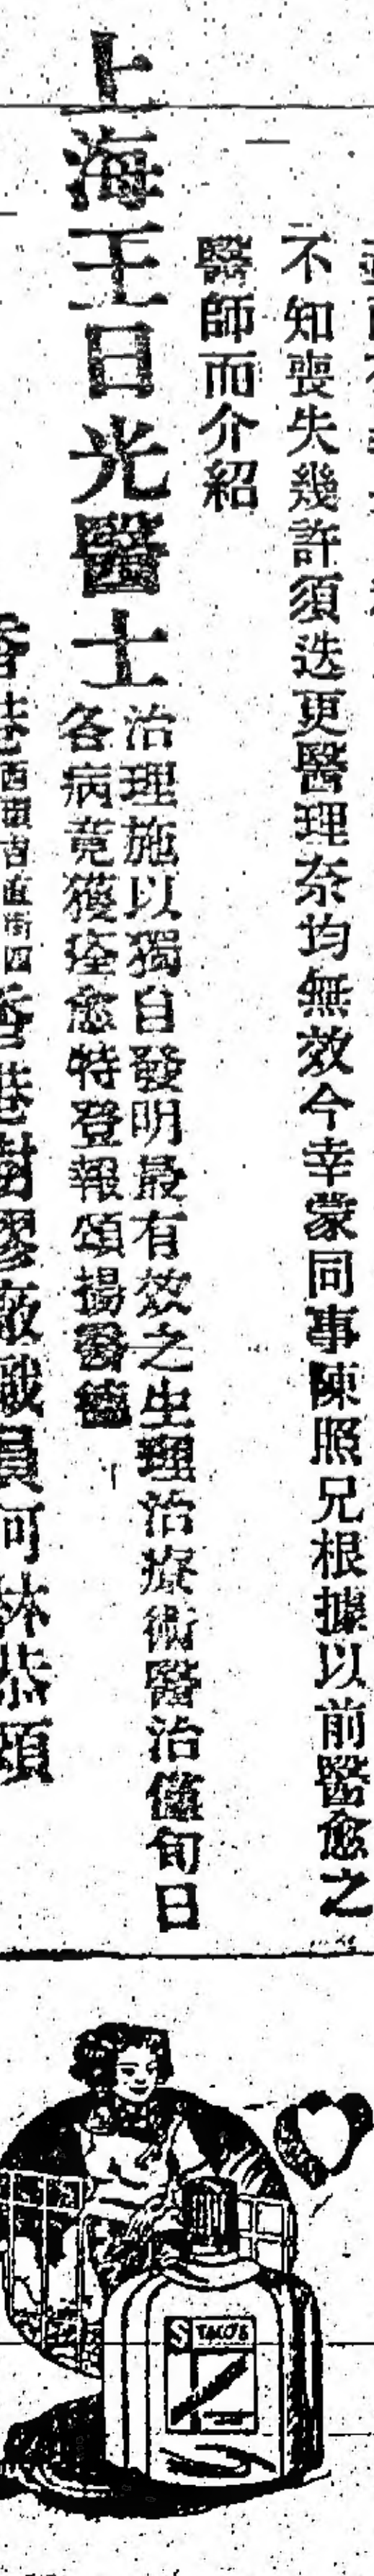 不知喪失幾許須迭更醫理奈均無效今幸蒙同事陳照兄根據以前醫愈之
醫師而介紹
上海王日光醫士
治理施以獨自發明最有效之生理治療術醫治僅旬日
各病竟獲痊愈特登報頌揚醫德
香港西環吉直街四
香港樹膠廠職員何林恭頌